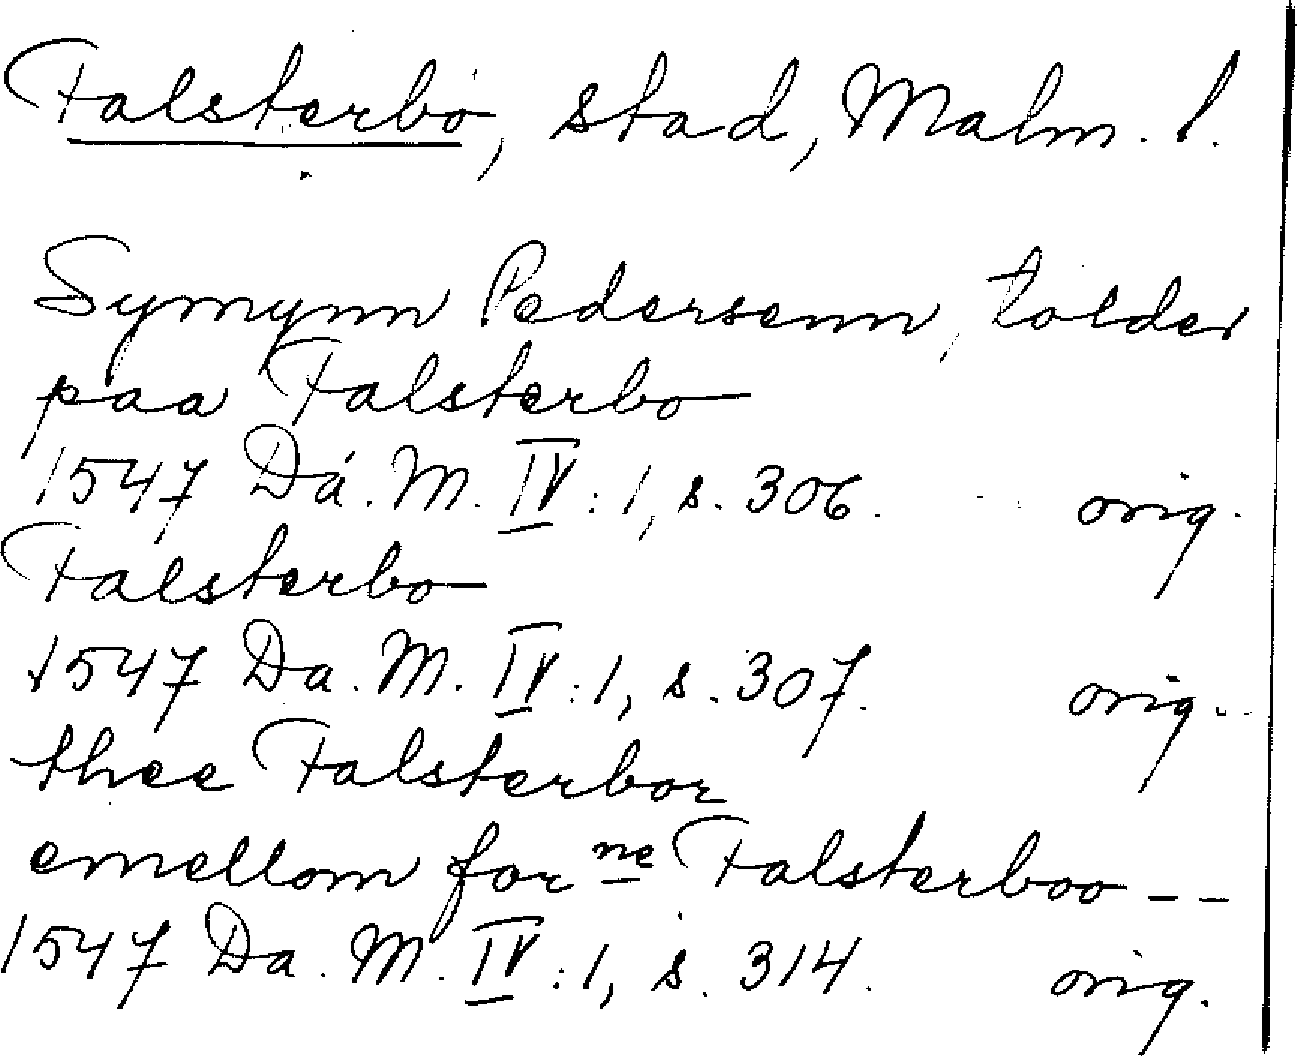 Falsterbo, stad, Malm. l.
Symynn Pedersenn, tolder
paa Falsterbo
1547 Da. M. IV:1, s. 306. orig.
Falsterbo
1547 Da. M. IV:1, s. 307. orig.
thee Falsterbor
emellom for ne Falsterboo --
1547 Da. M. IV:1, s. 314. orig.